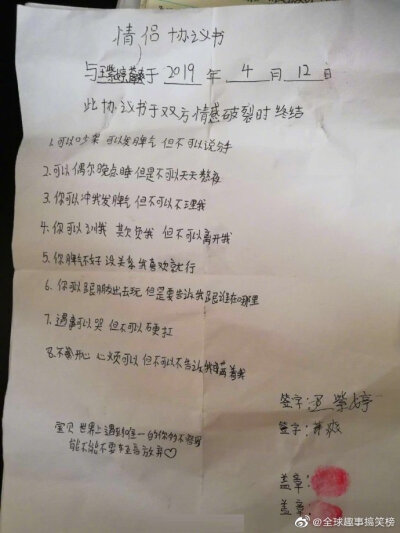 情侣协议书
与王紫婷 于2019年4月12日
此协议书于双方情感破裂时终结
1.可以吵架 可以发脾气 但不可以说分手
2.可以偶尔晚点睡 但是不可以天天熬夜
3.你可以冲我发脾气 但不可以不理我
4.你可以训我 欺负我 但不可以离开我
5.你脾气不好 没关系 我喜欢就行
6.你可以跟朋友出去玩 但是要告诉我跟谁在哪里
7.遇事可以哭 但不可以硬扛
8.不能开心 心烦可以 但不可以不告诉我 着我
签字:王紫婷
签字:
宝贝 世界上遇到唯一的你的不容易
能不能不要轻言放弃♡
盖章:
盖章:
@全球趣事搞笑榜